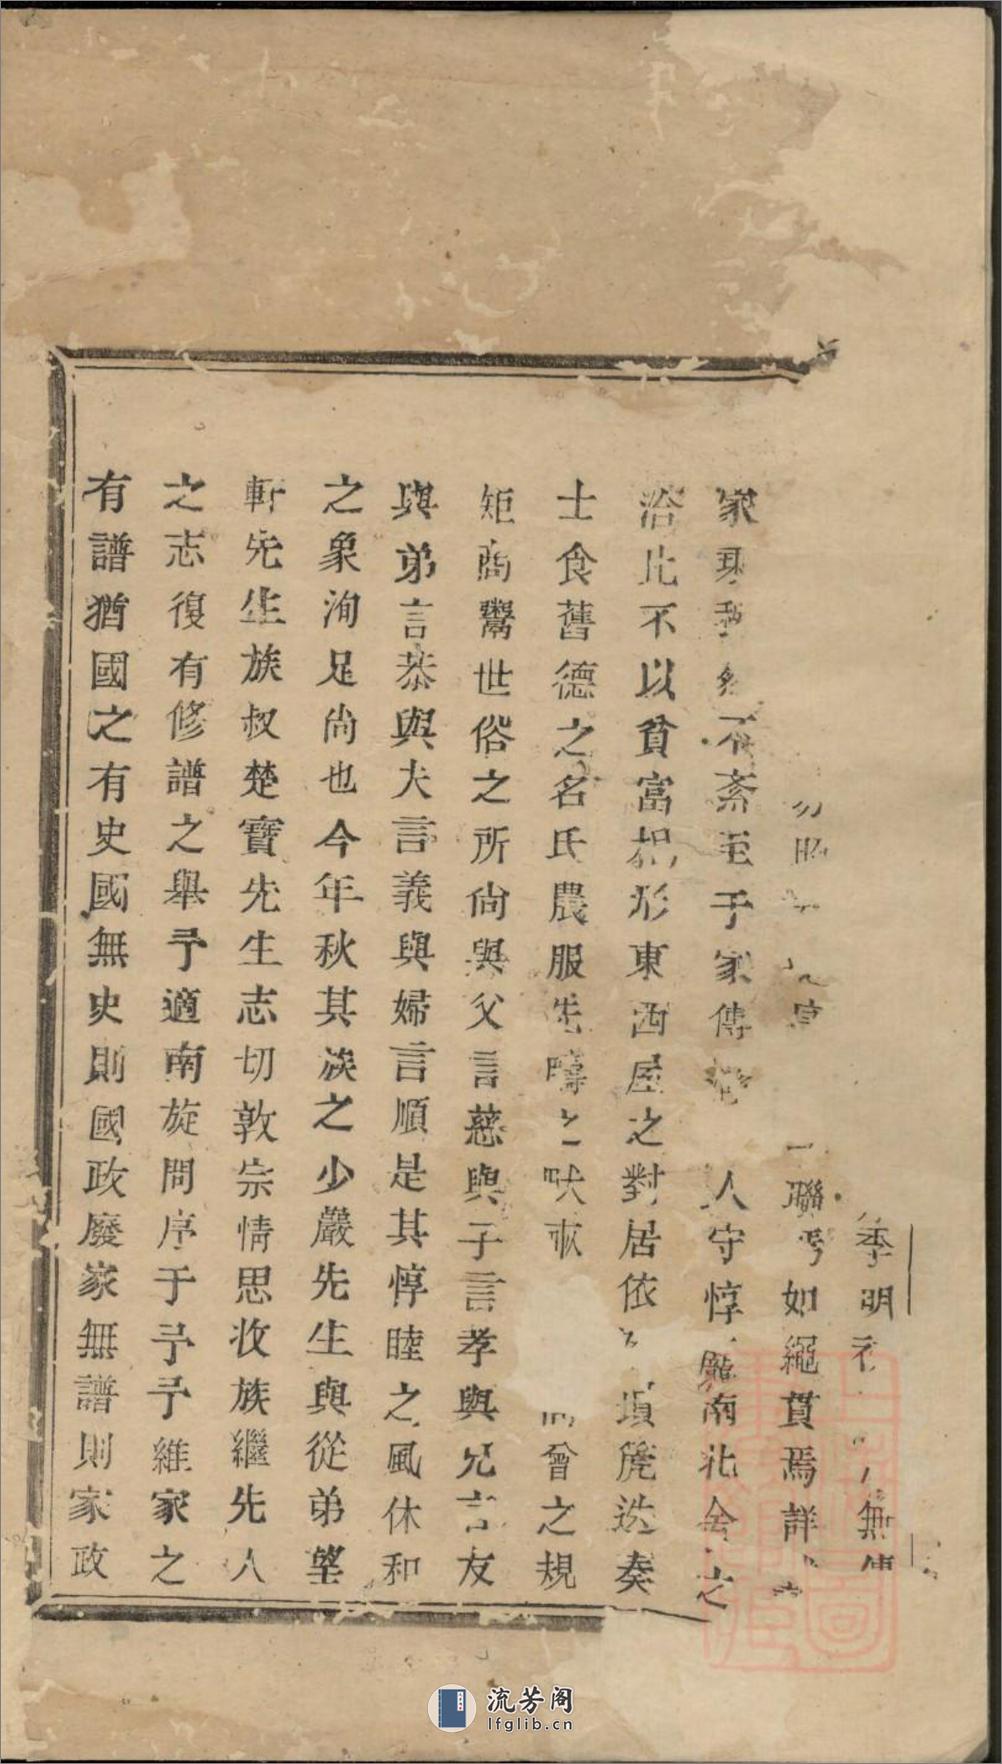 季明 無傳
聯 如繩貫焉詳
家 不紊至于家傳 人守惇龐南北 之
洽比不以貧富相形東西屋之對居依 塤篪迭奏
士食舊德之名氏農服先疇之畎畝 曾之規
矩商鬻世俗之所尙與父言慈與子言孝與兄言友
與弟言恭與夫言義與婦言順是其惇睦之風休和
之象洵足尙也今年秋其族之少嚴先生與從弟望
軒先生族叔楚寶先生志切敦宗情思收族繼先人
之志復有修譜之舉予適南旋問序于予予維家之
有譜猶國之有史國無史則國政廢家無譜則家政
流芳阁
lfglib.cn